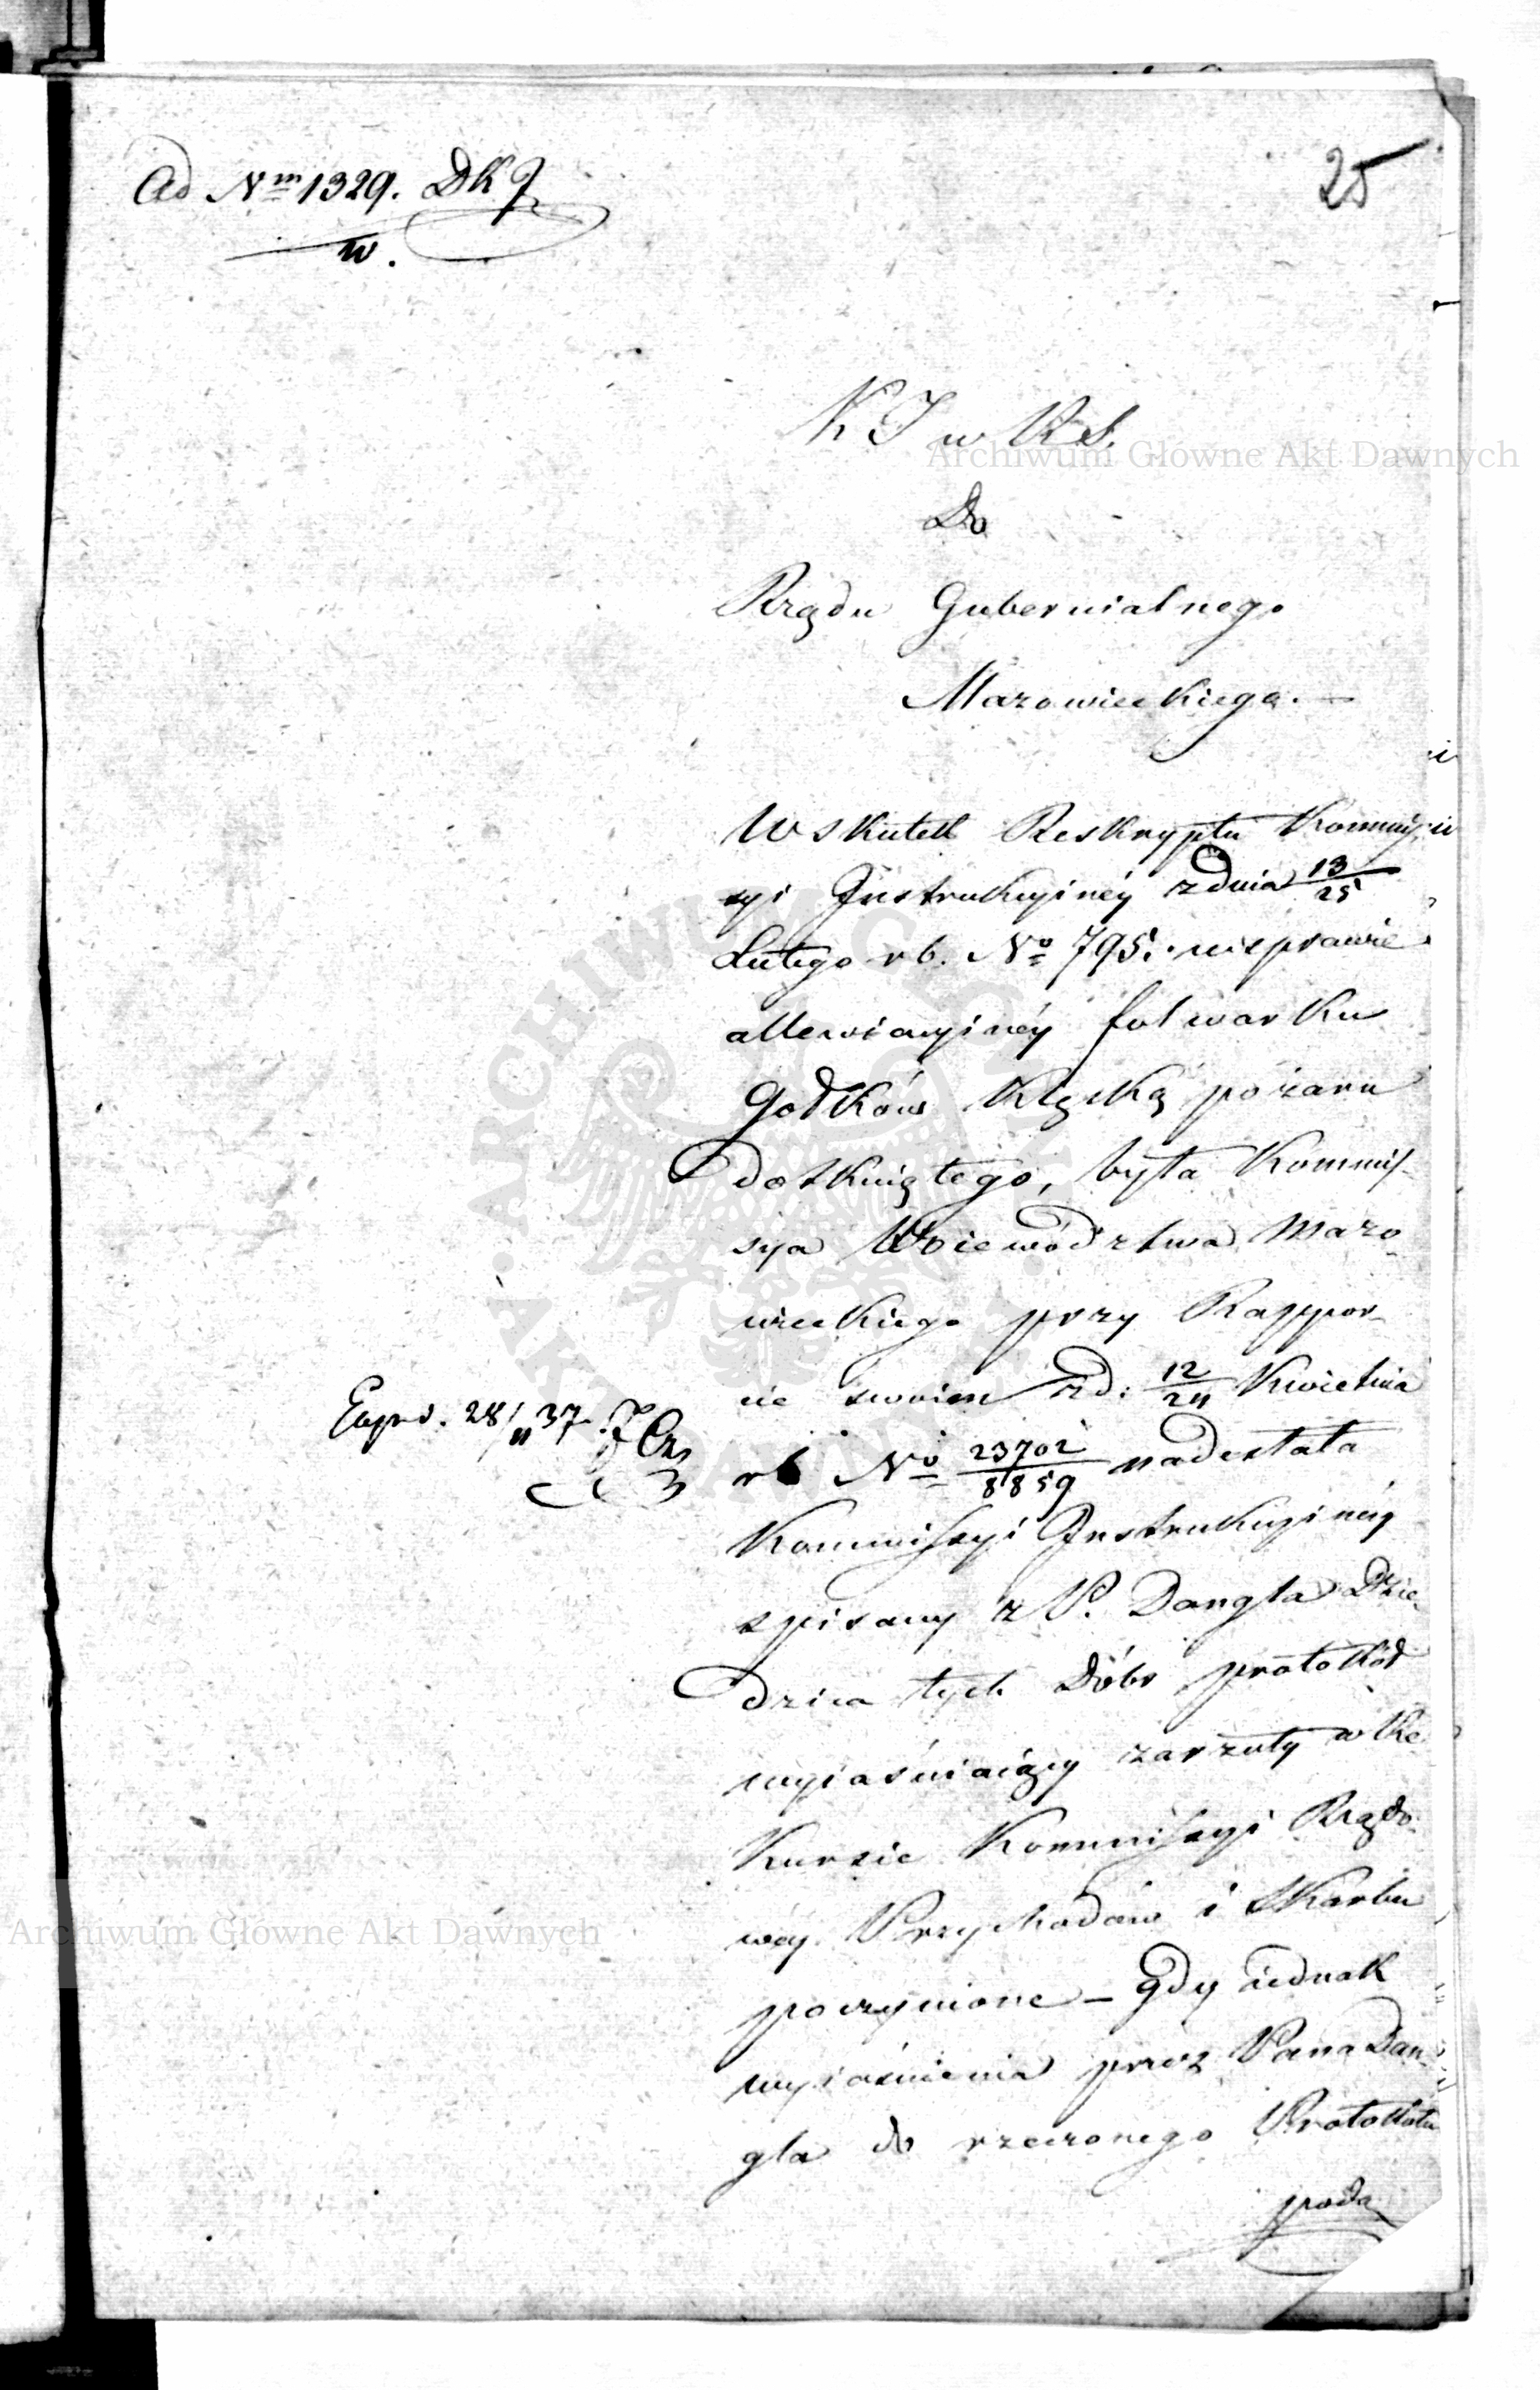 Ad Nrm 1329. DKJ
w.
25
K J w R S.
Do
Rządu Gubernialnego
Mazowieckiego. —
W skutek Reskryptu Kommis-
syi Instrukcyinéy z dnia 13/25
Lutego r b. No 795. w sprawie
allewiacyinéy folwarku
Godków klęską pożaru
dotkniętego, była Kommis-
sya Woiewództwa Mazo-
wieckiego przy Rappor-
cie swoim z d: 12/24 Kwietnia
Expd. 28/11 37.
r b No 23702/8859 nadesłała
Kommissyi Instrukcyinéy
spisany z P. Dangla Dzie-
dzica tych Dóbr protokół
wyiaśniaiący zarzuty w Re-
kursie Kommissyi Rządo-
wéy Przychodów i Skarbu
poczynione – Gdy iednak
wyiaśnienia przez Pana Dan-
gla do rzeczonego Protokółu
poda
Archiwum Główne Akt Dawnych
Archiwum Główne Akt Dawnych
ARCHIWUM GŁÓWNE AKT DAWNYCH